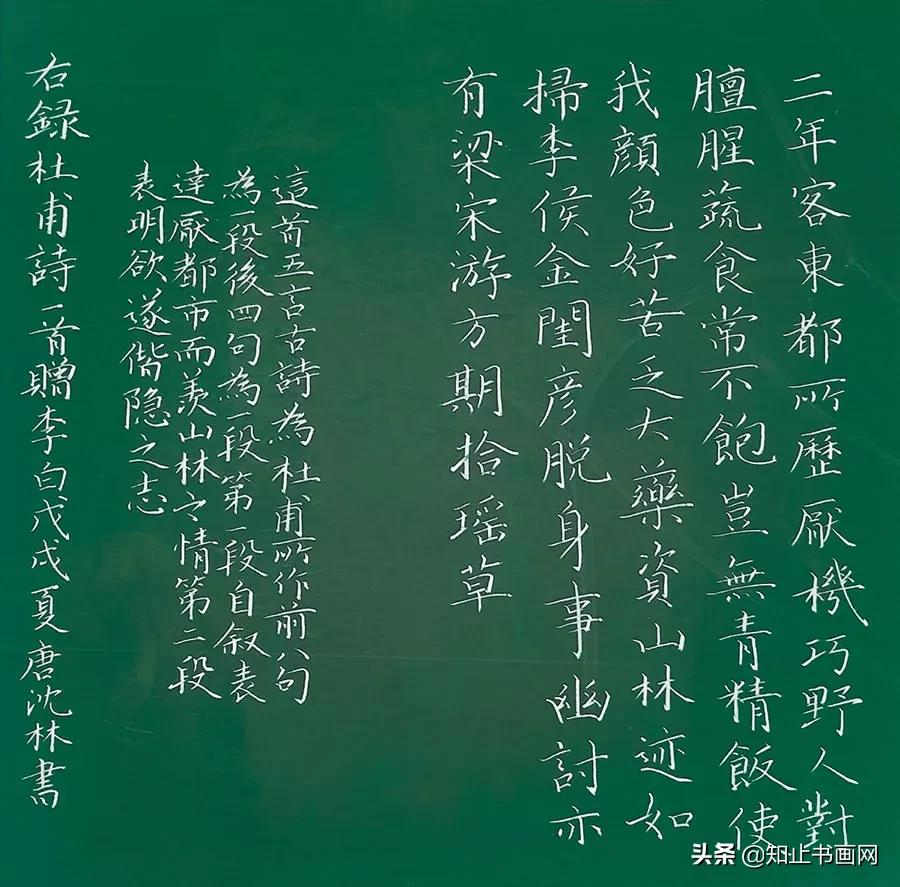 二年客東都所歷厭機巧野人對
膻腥蔬食常不飽豈無青精飯使
我顔色好苦乏大藥資山林迹如
掃李侯金閨彦脱身事幽討亦
有梁宋游方期拾瑶草
這首五言古詩為杜甫所作前八句
為一段後四句為一段第一段自叙表
達厭都市而羨山林之情第二段
表明欲遂偕隐之志
右録杜甫詩一首贈李白戊戌夏唐沈林書
头条 @知止书画网